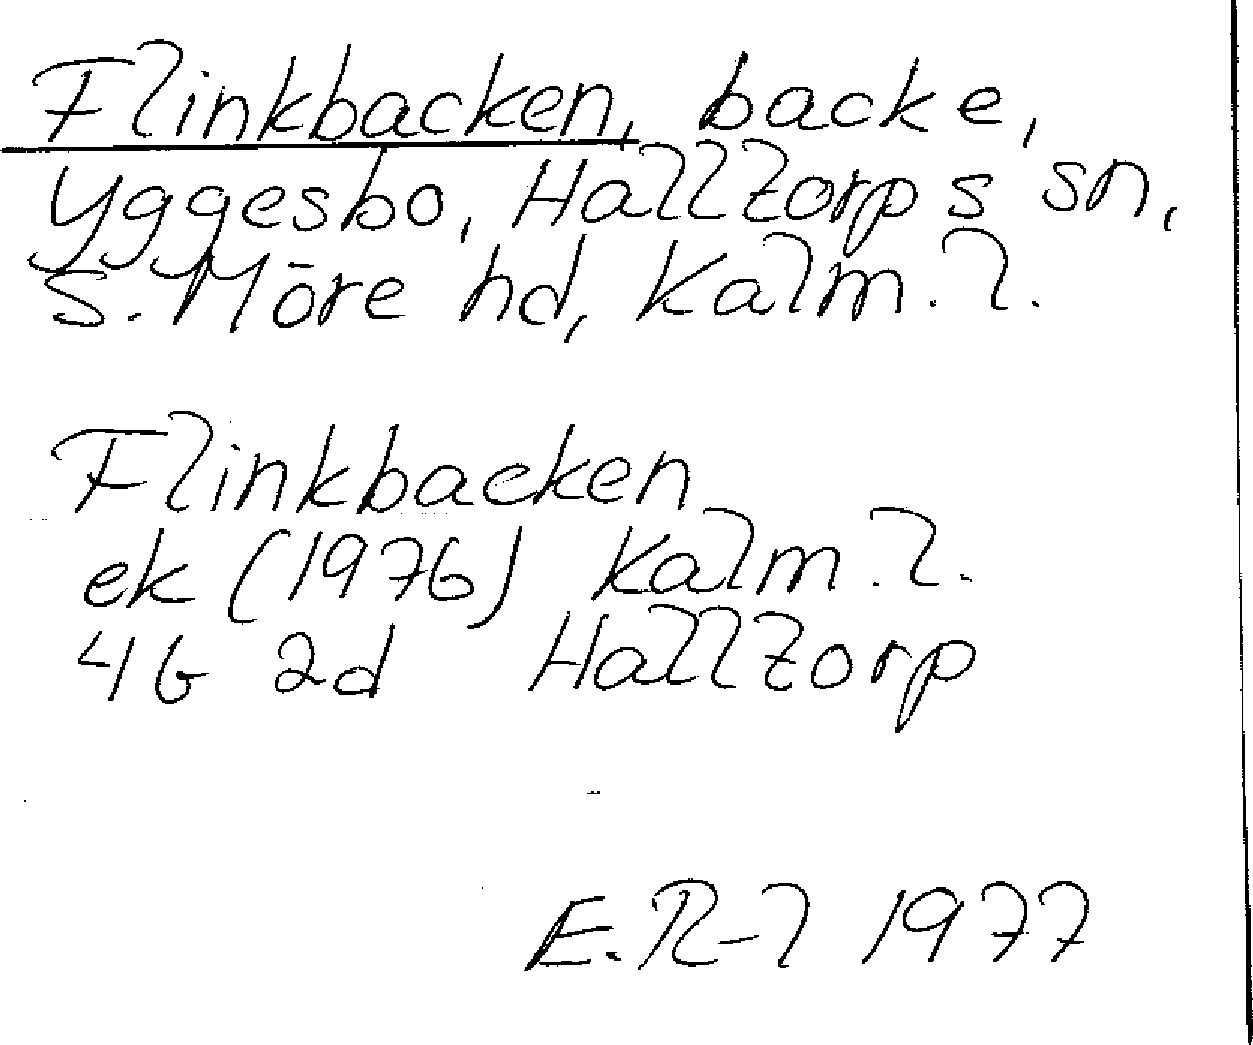 Flinkbacken, backe,
Yggesbo, Halltorps sn,
S. Möre hd, Kalm. l.
Flinkbacken
ek (1976) Kalm. l.
4G 2d Halltorp
1977